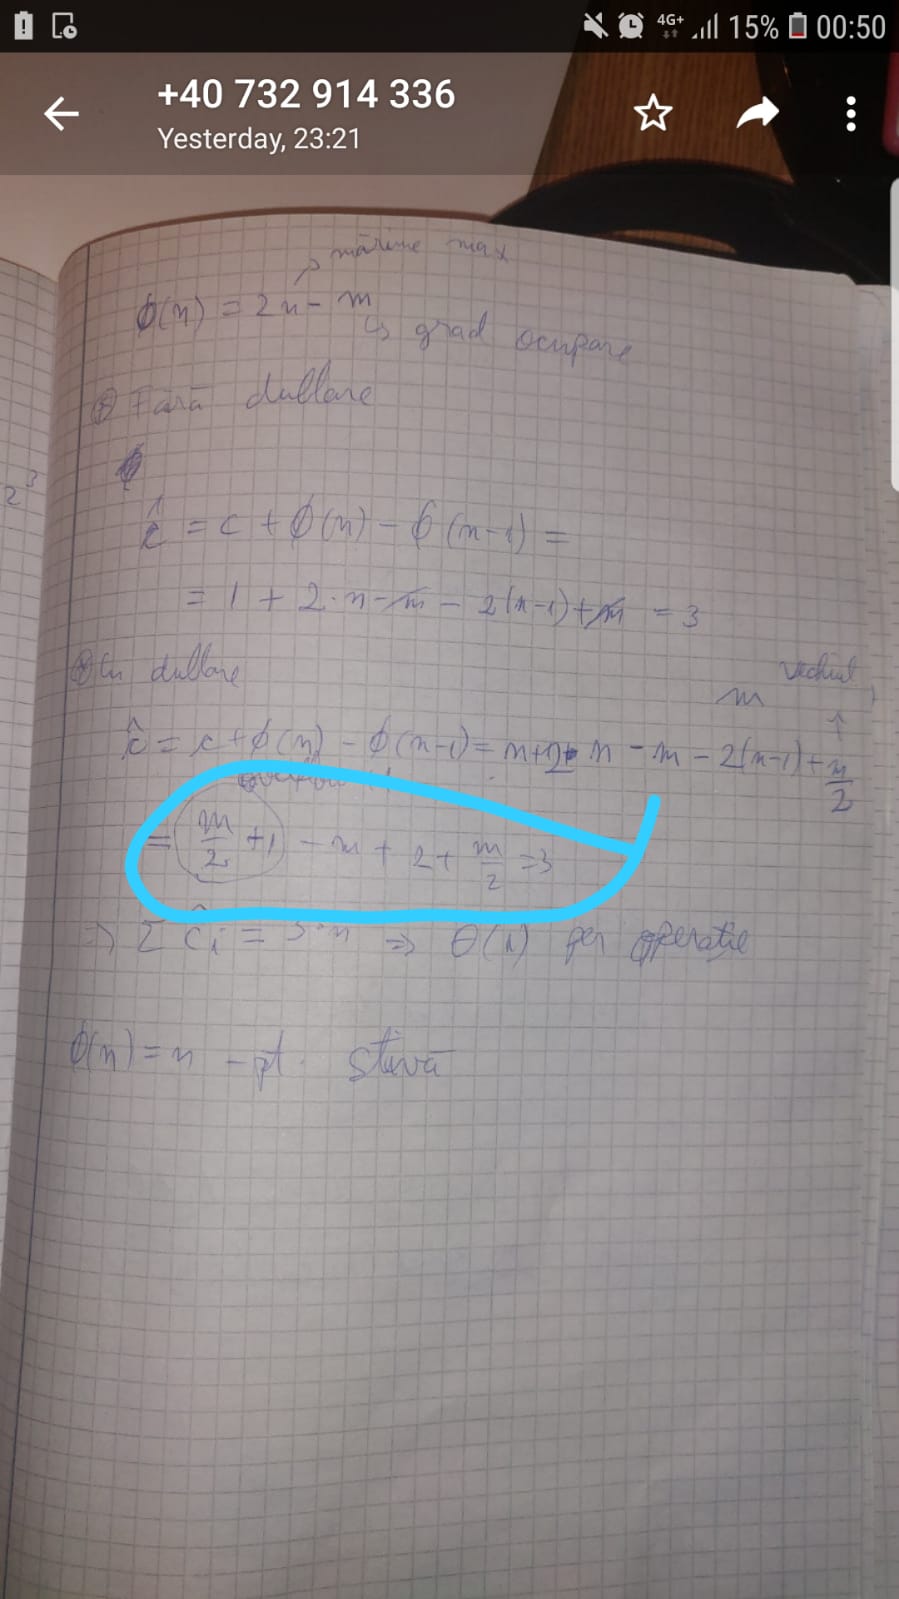 4G+ 15% 00:50
+40 732 914 336
Yesterday, 23:21
mărime max
ϕ(n) = 2n - m
grad ocupare
Fără dublare
2³
ĉ = c + ϕ(n) - ϕ(n-1) =
= 1 + 2·n - m - 2(n-1) + m = 3
Cu dublare
vechiul
m
ĉ = c + ϕ(n) - ϕ(n-1) = n + 2·n - m - 2(n-1) + m/2
= (m/2 + 1) - m + 2 + m/2 = 3
=> Σ ĉi = 3·n => θ(1) per operație
ϕ(n) = n - pt. stivă